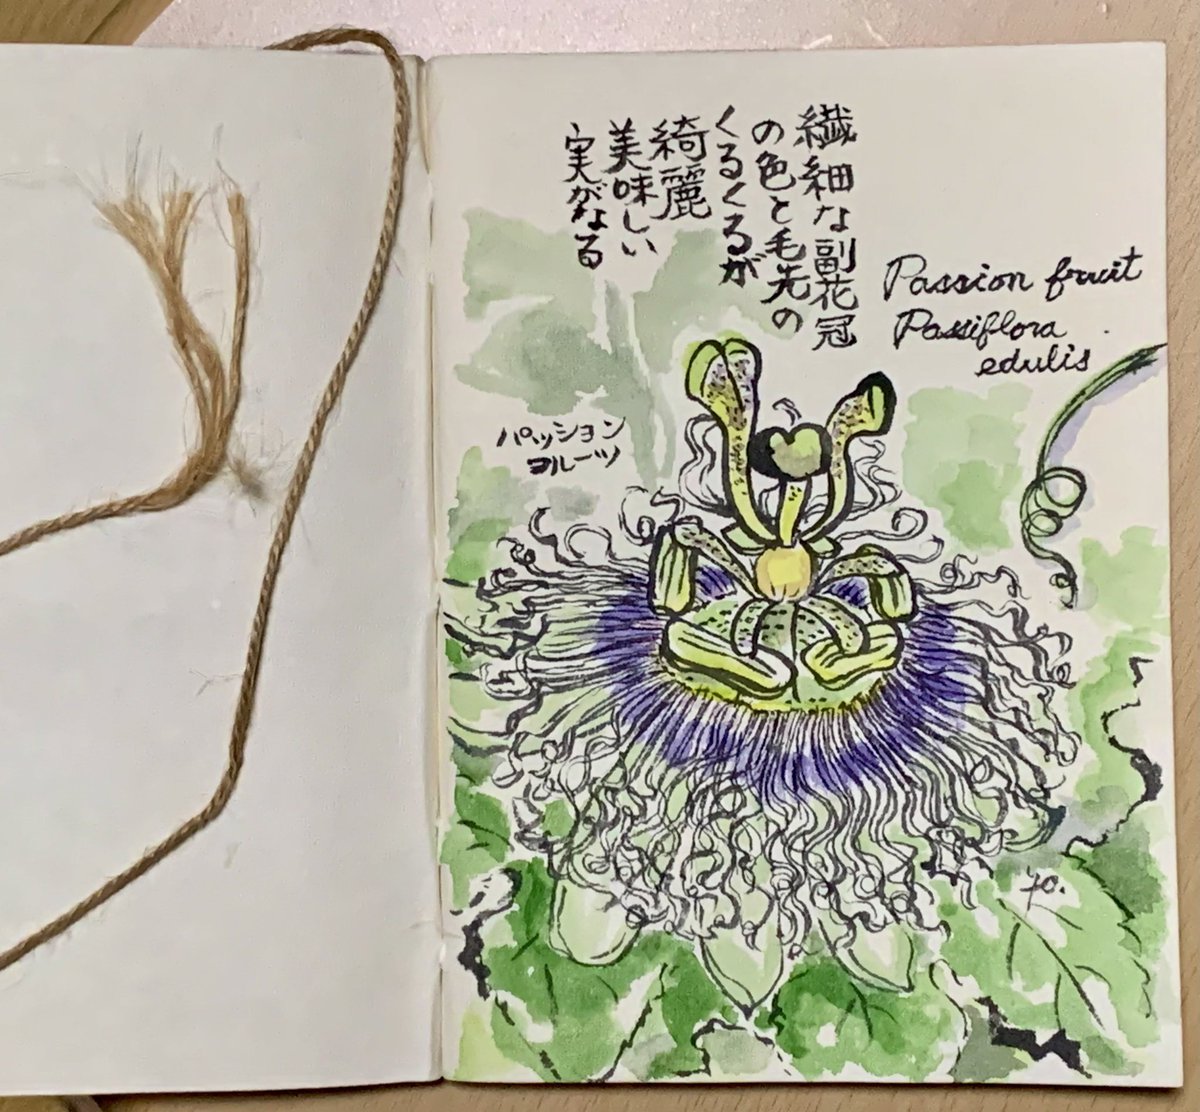 繊細な副花冠
の色と毛先の
くるくるが
綺麗
美味しい
実がなる
Passion fruit
Passiflora
edulis
パッション
フルーツ
yo.